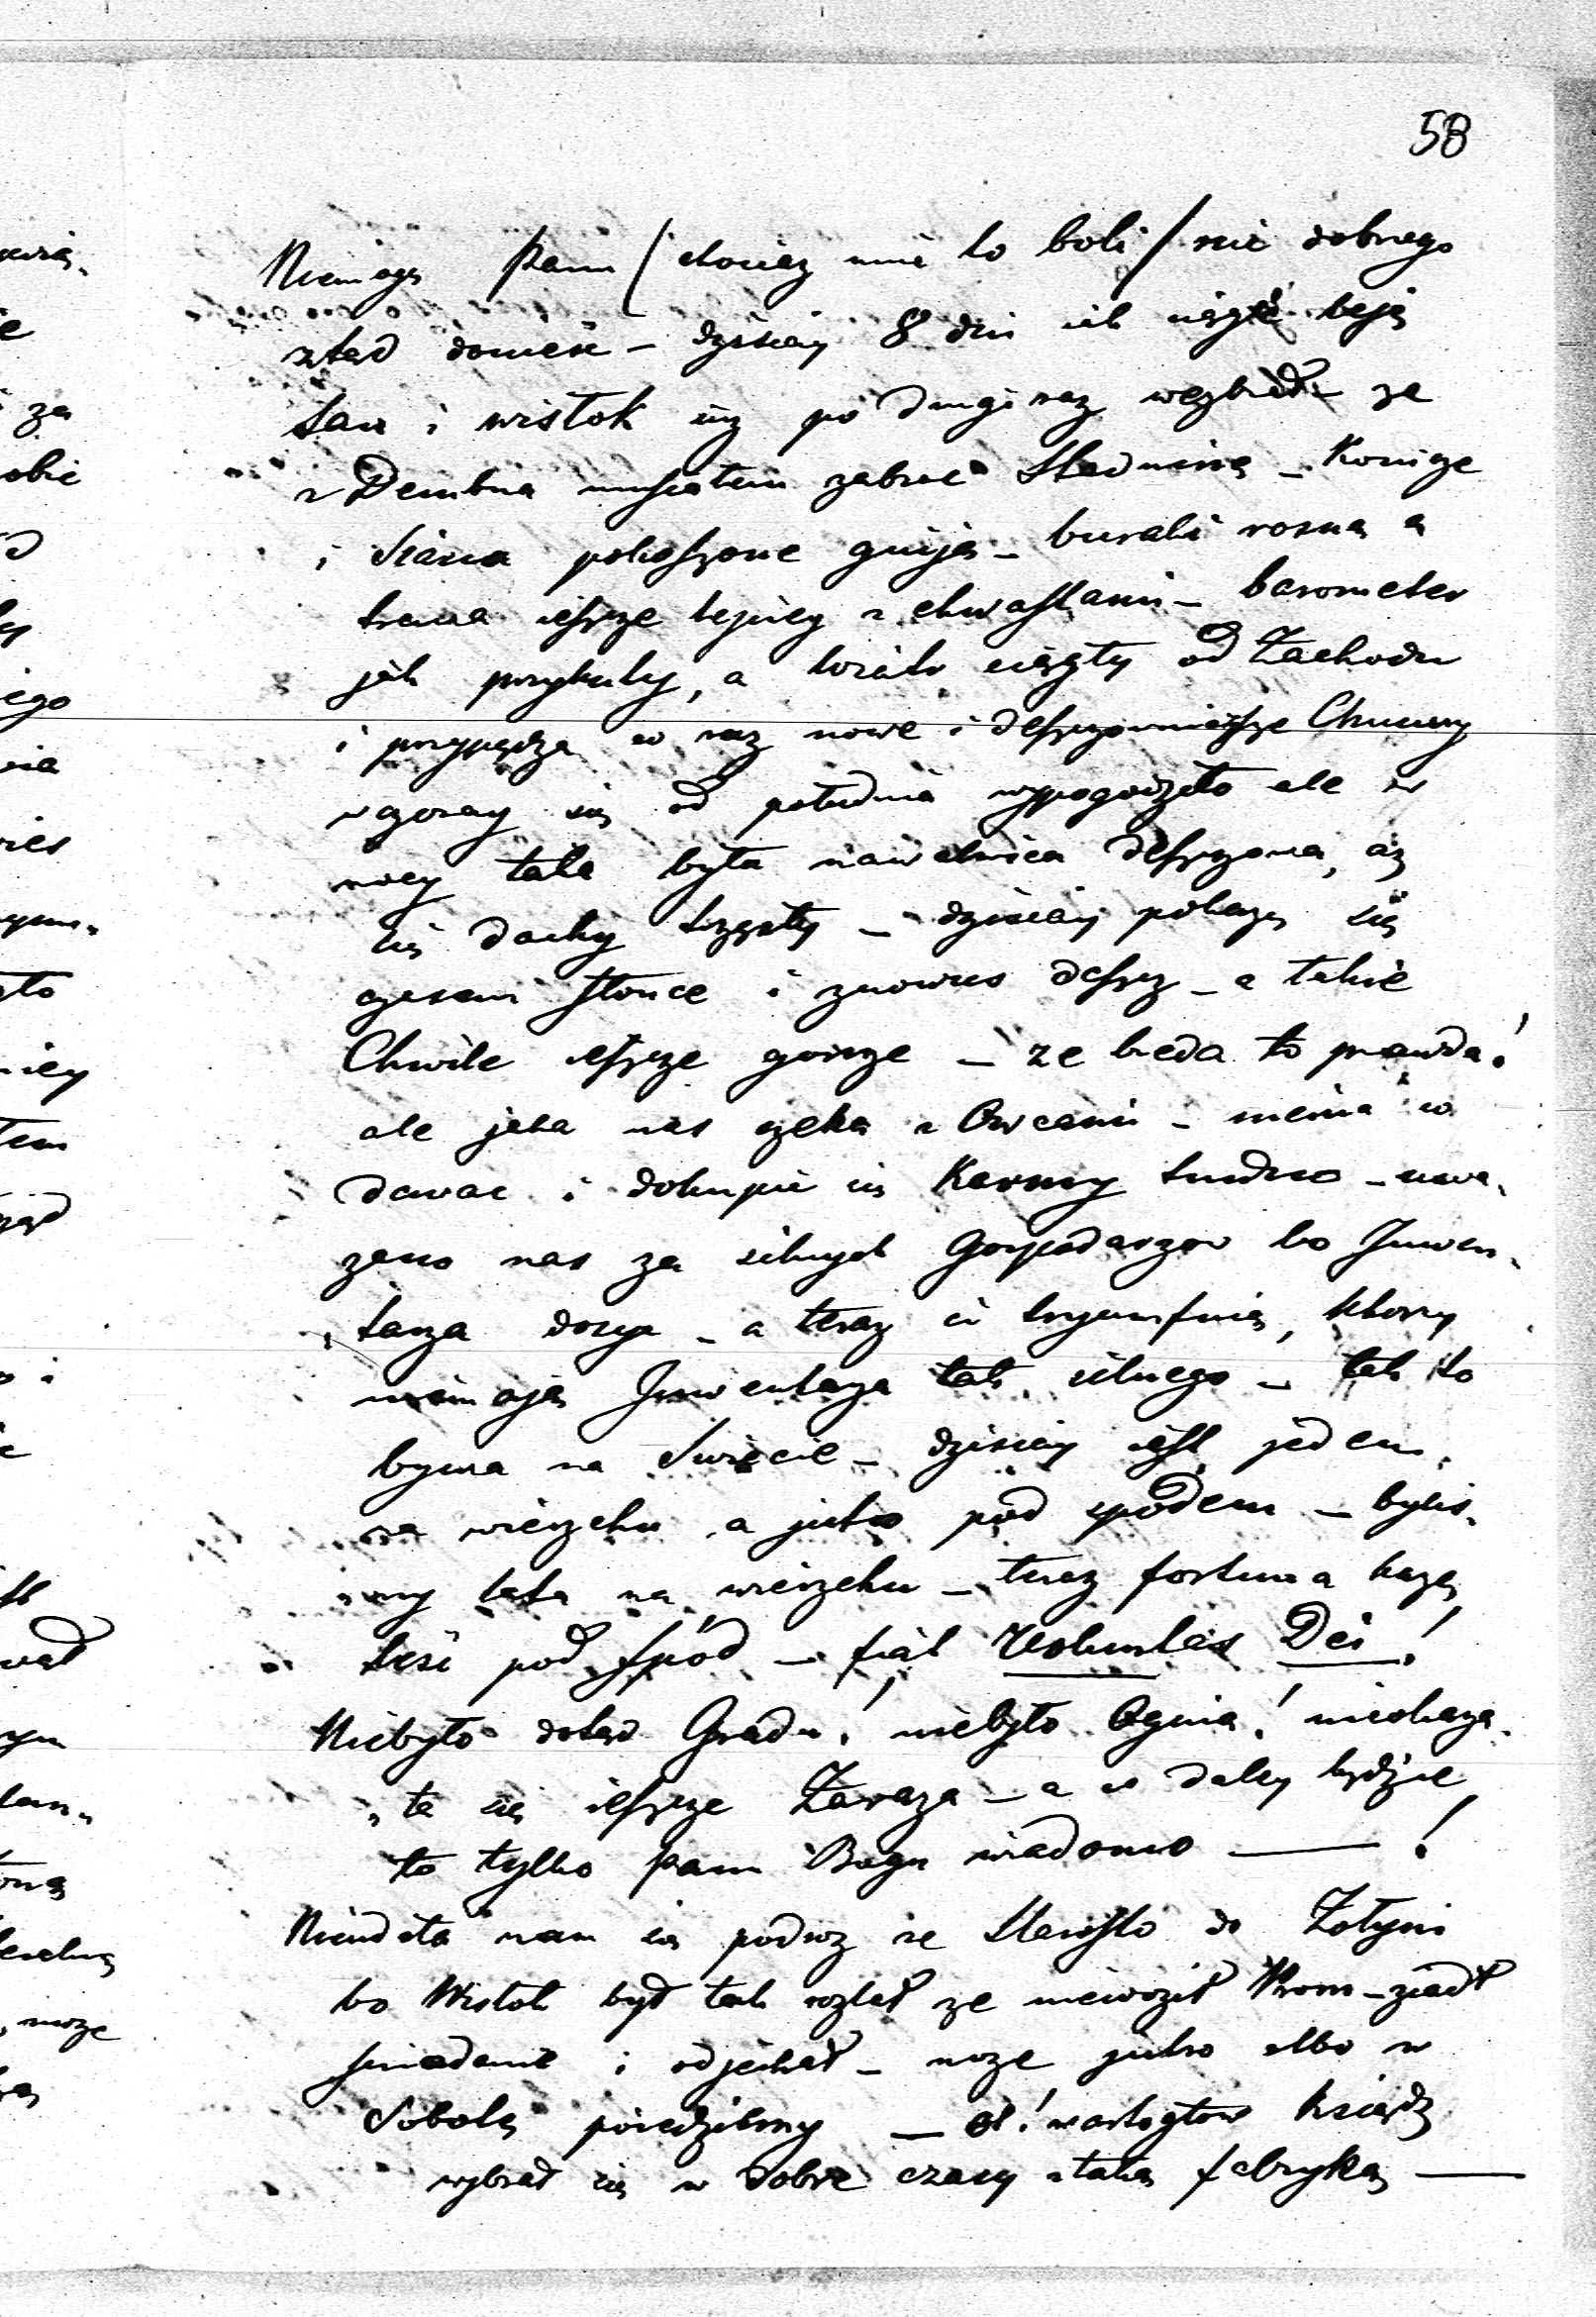 58
Niemogę Panu / chociaz mnie to boli / nic dobrego
ztąd donieść – dzisiay 8 dni jak ciągle leją
San i Wisłok iuz po drugi raz wezbrał – ze
z Dembna musiałem zabrać Stadninę – Konicze
i Siana pokoszone gniją – buraki rosną a
trawa ieszcze lepiey z chwastami – barometer
jak przykuty, a wiatr ciągły od Zachodu
i przypędza co raz nowe i deszczownieysze Chmury
wczoray się od południa wypogodziło ale w
nocy taka była nawałnica deszczowa, aż
się dachy trzęsły – dzisiay pokazu się
czasem słonce i znowus deszcz – a takie
Chwile ieszcze gorsze – ze bieda to prawda!
ale jaka nas czeka z Owcami – niema co
dawac i dokupie się Karmy trudno – uwa„
zano nas za silnych Gospodarzow bo Inwen„
„tarza dosyc – a teraz ci tryumfuią, ktorzy
niemają Inwentarza tak silnego – tak to
bywa na Swiecie – dzisiay iest jeden
na wierzchu a jutro pod spodem – bylis„
„my lata na wierzchu – teraz fortuna kaze
leść pod spód – fiat Voluntas Dei!
Niebyło dotąd Gradu! niebyło Ognia! nieokaza„
„ła się ieszcze Zaraza – a co daley będzie
to tylko Panu Bogu wiadomo —!
Nieudała nam się podroz ze Starostą do Zołyni
bo Wisłok był tak rozlał ze niewoził Prom – ziadł
sniadanie i odjechał – moze jutro albo w
Sobotę poiedziemy – ksiądz
wybrał się w dobre czasy z taką fabryką —